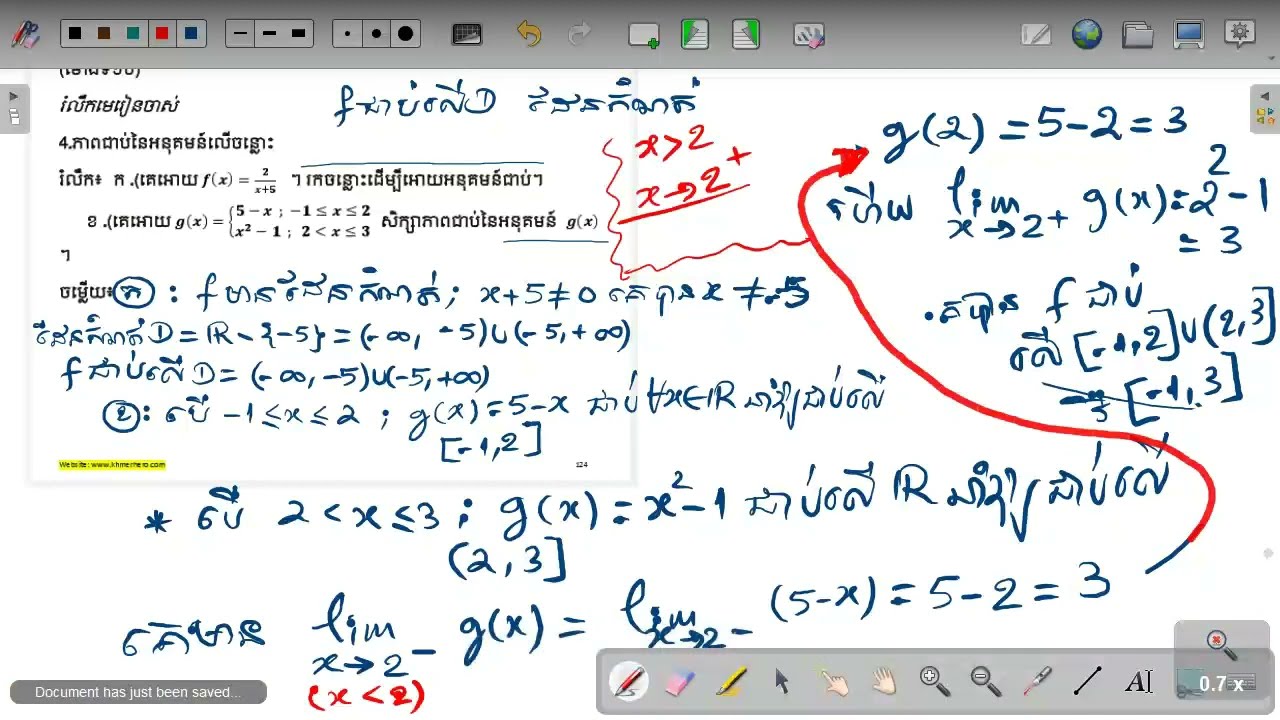 រំលឹកមេរៀនចាស់
f ជាប់លើ D ដែនកំណត់
4.ភាពជាប់នៃអនុគមន៍លើចន្លោះ
រំលឹក៖ ក .(គេអោយ f(x) = 2/(x+5) ។ រកចន្លោះដើម្បីអោយអនុគមន៍ជាប់។
ខ .(គេអោយ g(x) = { 5 − x ; −1 ≤ x ≤ 2
x² − 1 ; 2 < x ≤ 3 សិក្សាភាពជាប់នៃអនុគមន៍ g(x)
។
x > 2
x → 2⁺
g(2) = 5 − 2 = 3
ហើយ lim x→2⁺ g(x) = 2² − 1
= 3
ចម្លើយ៖ ក : f មានដែនកំណត់ ; x + 5 ≠ 0 គេបាន x ≠ -5
ដែនកំណត់ D = IR − {−5} = (−∞, −5) ∪ (−5, +∞)
f ជាប់លើ D = (−∞, −5) ∪ (−5, +∞)
ខ : បើ −1 ≤ x ≤ 2 ; g(x) = 5 − x ជាប់ ∀x∈IR នាំឱ្យជាប់លើ
[−1, 2]
• គេបាន f ជាប់
លើ [−1, 2] ∪ (2, 3]
[−1, 3]
Website: www.khmerhero.com
124
* បើ 2 < x ≤ 3 ; g(x) = x² − 1 ជាប់លើ IR នាំឱ្យ ជាប់លើ
(2, 3]
គេមាន lim x→2⁻ g(x) = lim x→2⁻ (5−x) = 5 − 2 = 3
(x < 2)
Document has just been saved...
0.7 x